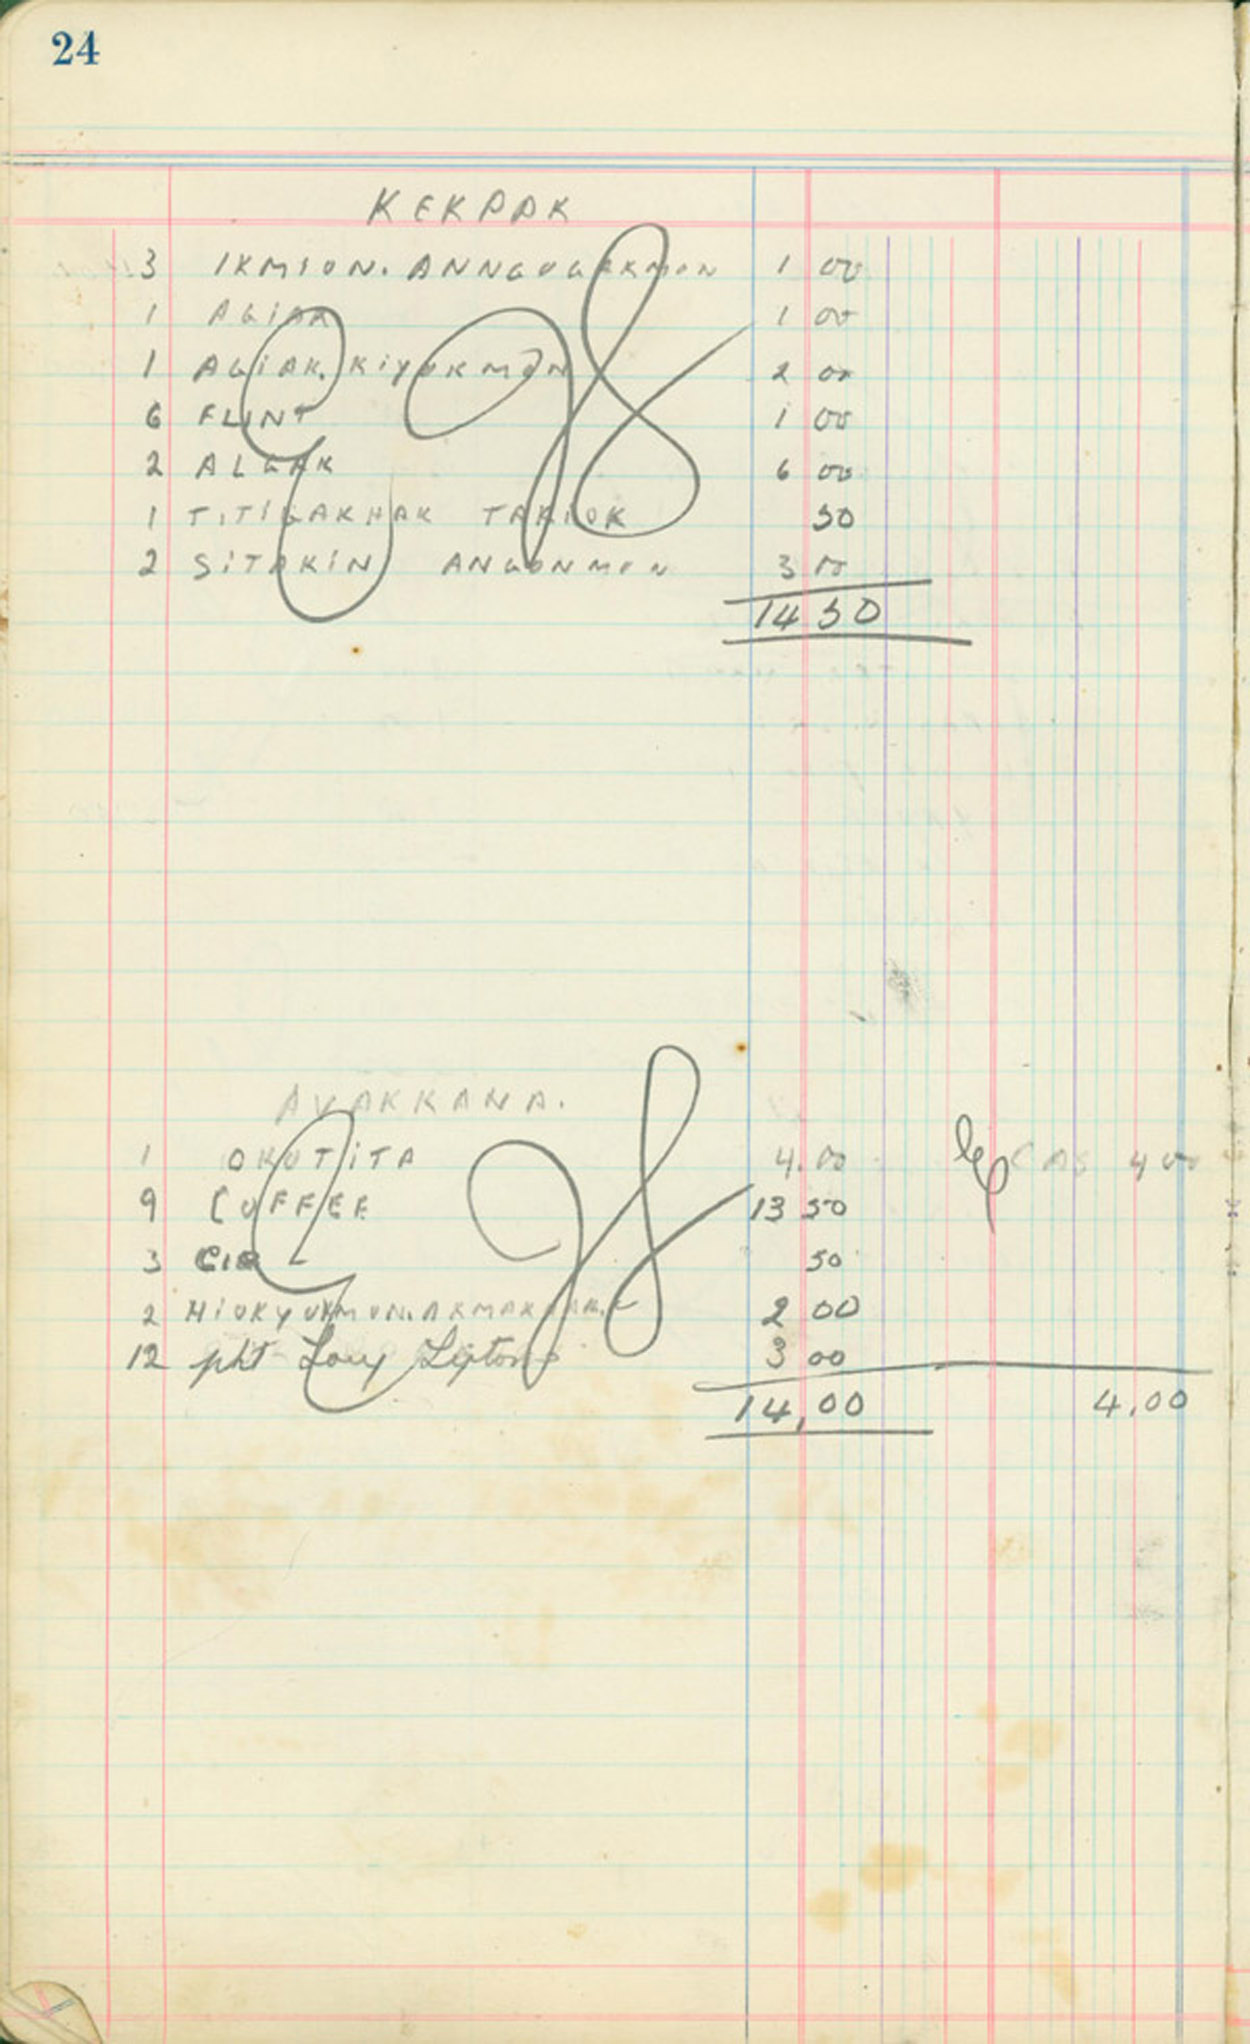 24
KEKPAK
3 IKMION. ANNGUGAKMON 1 00
1 AGIAK 1 00
1 AGIAK. KIYUKMON 2 00
6 FLINT 1 00
2 ALGAK 6 00
1 TITIGAKHAK TARIOK 50
2 SITAKIN ANGONMON 3 00
14 50
AVAKKANA.
1 OKUTITA 4.00 CAS 4 00
9 COFFEE 13 50
3 50
2 2 00
12 pkt Liptons 3 00
14,00 4,00